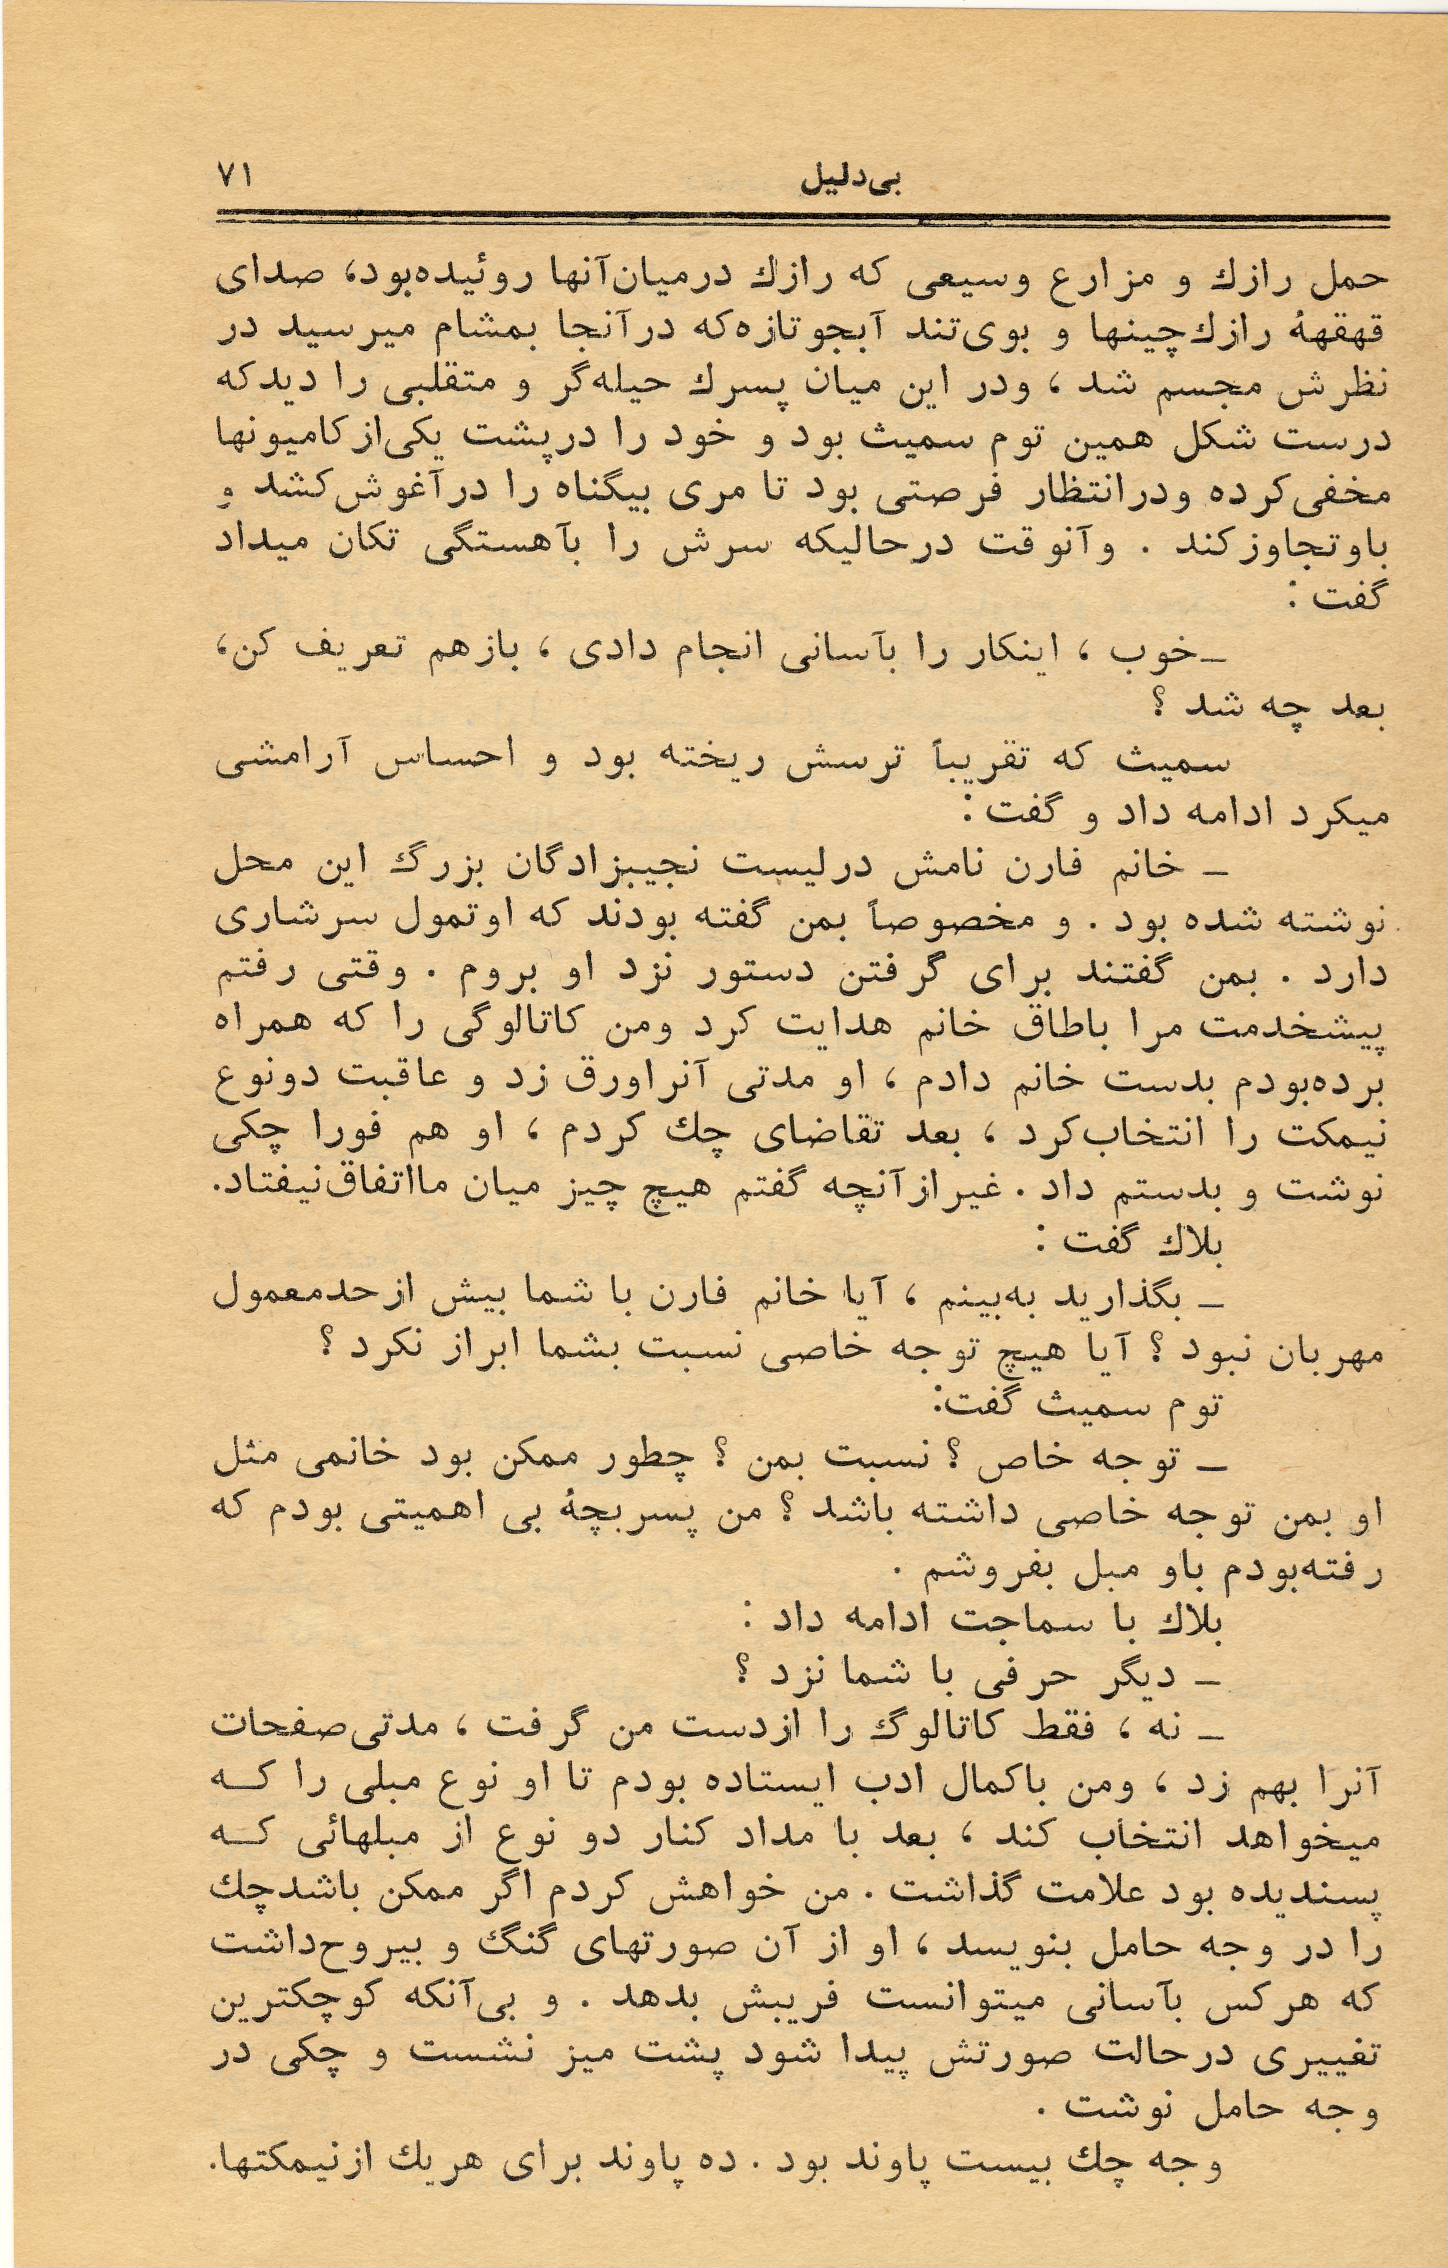 بی‌دلیل ۷۱
حمل رازك و مزارع وسیعی که رازك درمیان‌آنها روئیده‌بود، صدای
قهقههٔ رازك‌چینها و بوی‌تند آبجوتازه‌که درآنجا بمشام میرسید در
نظرش مجسم شد ، ودر این میان پسرك حیله‌گر و متقلبی را دیدکه
درست شکل همین توم سمیث بود و خود را درپشت یکی‌ازکامیونها
مخفی‌کرده ودرانتظار فرصتی بود تا مری بیگناه را درآغوش‌کشد و
باوتجاوزکند . وآنوقت درحالیکه سرش را بآهستگی تکان میداد
گفت :
ـ خوب ، اینکار را بآسانی انجام دادی ، بازهم تعریف کن،
بعد چه شد ؟
سمیث که تقریباً ترسش ریخته بود و احساس آرامشی
میکرد ادامه داد و گفت :
ـ خانم فارن نامش درلیست نجیبزادگان بزرگ این محل
نوشته شده بود . و مخصوصاً بمن گفته بودند که اوتمول سرشاری
دارد . بمن گفتند برای گرفتن دستور نزد او بروم . وقتی رفتم
پیشخدمت مرا باطاق خانم هدایت کرد ومن کاتالوگی را که همراه
برده‌بودم بدست خانم دادم ، او مدتی آنراورق زد و عاقبت دونوع
نیمکت را انتخاب‌کرد ، بعد تقاضای چك کردم ، او هم فورا چکی
نوشت و بدستم داد . غیرازآنچه گفتم هیچ چیز میان مااتفاق‌نیفتاد.
بلاك گفت :
ـ بگذارید به‌بینم ، آیا خانم فارن با شما بیش ازحدمعمول
مهربان نبود ؟ آیا هیچ توجه خاصی نسبت بشما ابراز نکرد ؟
توم سمیث گفت:
ـ توجه خاص ؟ نسبت بمن ؟ چطور ممکن بود خانمی مثل
او بمن توجه خاصی داشته باشد ؟ من پسربچهٔ بی اهمیتی بودم که
رفته‌بودم باو مبل بفروشم .
بلاك با سماجت ادامه داد :
ـ دیگر حرفی با شما نزد ؟
ـ نه ، فقط کاتالوگ را ازدست من گرفت ، مدتی‌صفحات
آنرا بهم زد ، ومن باکمال ادب ایستاده بودم تا او نوع مبلی را کـه
میخواهد انتخاب کند ، بعد با مداد کنار دو نوع از مبلهائی کـه
پسندیده بود علامت گذاشت . من خواهش کردم اگر ممکن باشدچك
را در وجه حامل بنویسد ، او از آن صورتهای گنگ و بیروح‌داشت
که هرکس بآسانی میتوانست فریبش بدهد . و بی‌آنکه کوچکترین
تغییری درحالت صورتش پیدا شود پشت میز نشست و چکی در
وجه حامل نوشت .
وجه چك بیست پاوند بود . ده پاوند برای هریك ازنیمکتها.